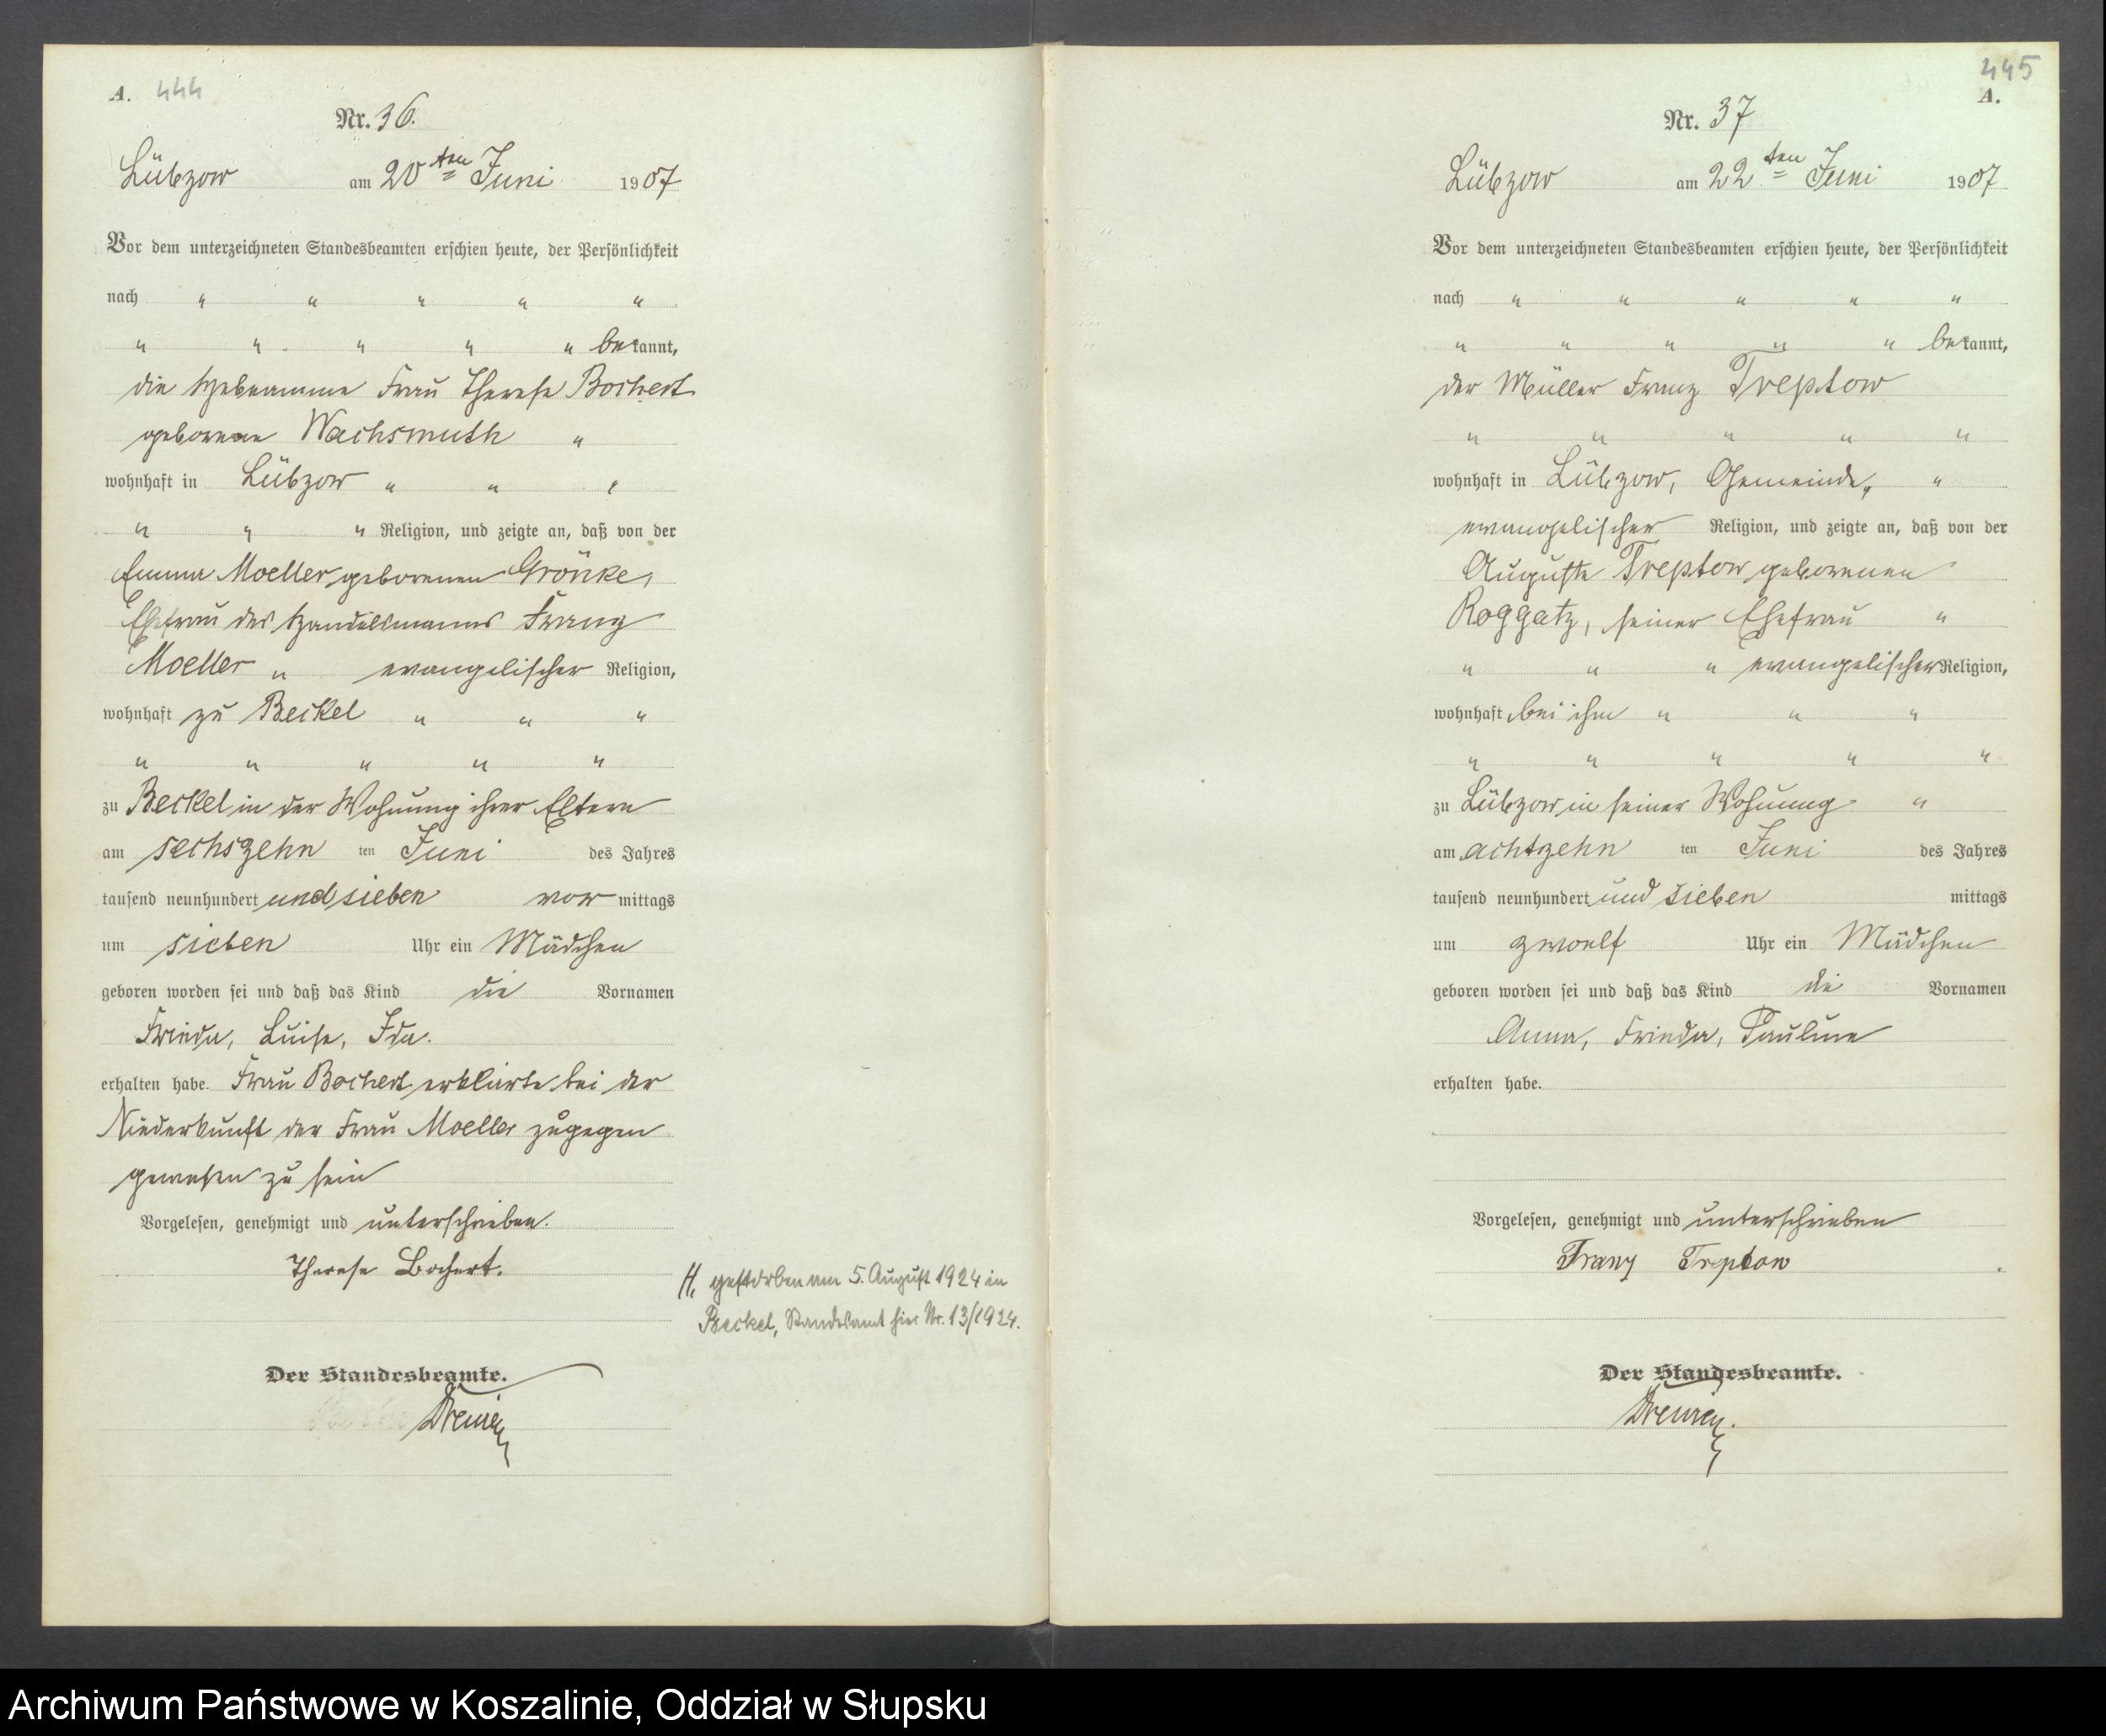 A. 444
Nr. 36.
Lübzow am 20ten Juni 1907
Vor dem unterzeichneten Standesbeamten erschien heute, der Persönlichkeit
nach " " " " "
" " " " " bekannt,
die Hebeamme Frau Therese Bochert
geborene Wachsmuth "
wohnhaft in Lübzow " " "
" " " Religion, und zeigte an, daß von der
Emma Moeller, geborenen Grönke,
Ehefrau des Handelsmanns Franz
Moeller " evangelischer Religion,
wohnhaft zu Beckel " " "
" " " " "
zu Beckel in der Wohnung ihrer Eltern
am sechszehn ten Juni des Jahres
tausend neunhundert und sieben vor mittags
um sieben Uhr ein Mädchen
geboren worden sei und daß das Kind die Vornamen
Frieda, Luise, Ida.
erhalten habe. Frau Bochert erklärte bei der
Niederkunft der Frau Moeller zugegen
gewesen zu sein
Vorgelesen, genehmigt und unterschrieben.
Therese Bochert.
Der Standesbeamte.
H. gestorben am 5. August 1924 in
Beckel, Standesamt hier Nr. 13/1924.
445
A.
Nr. 37
Lübzow am 22ten Juni 1907
Vor dem unterzeichneten Standesbeamten erschien heute, der Persönlichkeit
nach " " " " "
" " " " " bekannt,
der Müller Franz Treptow
" " " " "
wohnhaft in Lübzow, Gemeinde, "
evangelischer Religion, und zeigte an, daß von der
Auguste Treptow geborenen
Roggatz, seiner Ehefrau "
" " " evangelischer Religion,
wohnhaft bei ihm " " "
" " " " "
zu Lübzow in seiner Wohnung "
am achtzehn ten Juni des Jahres
tausend neunhundert und sieben mittags
um zwoelf Uhr ein Mädchen
geboren worden sei und daß das Kind die Vornamen
Anna, Frieda, Pauline
erhalten habe.
Vorgelesen, genehmigt und unterschrieben
Franz Treptow
Der Standesbeamte.
Archiwum Państwowe w Koszalinie, Oddział w Słupsku